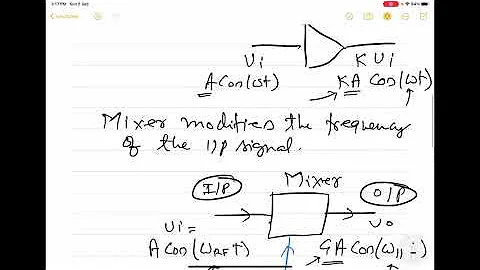 Ui K Ui
A Cos(ωt) KA Cos(ωt)
Mixer modifies the frequency
of the I/P signal.
Mixer
I/P O/P
Ui = Uo
A Cos(ωRFt) GA Cos(ω